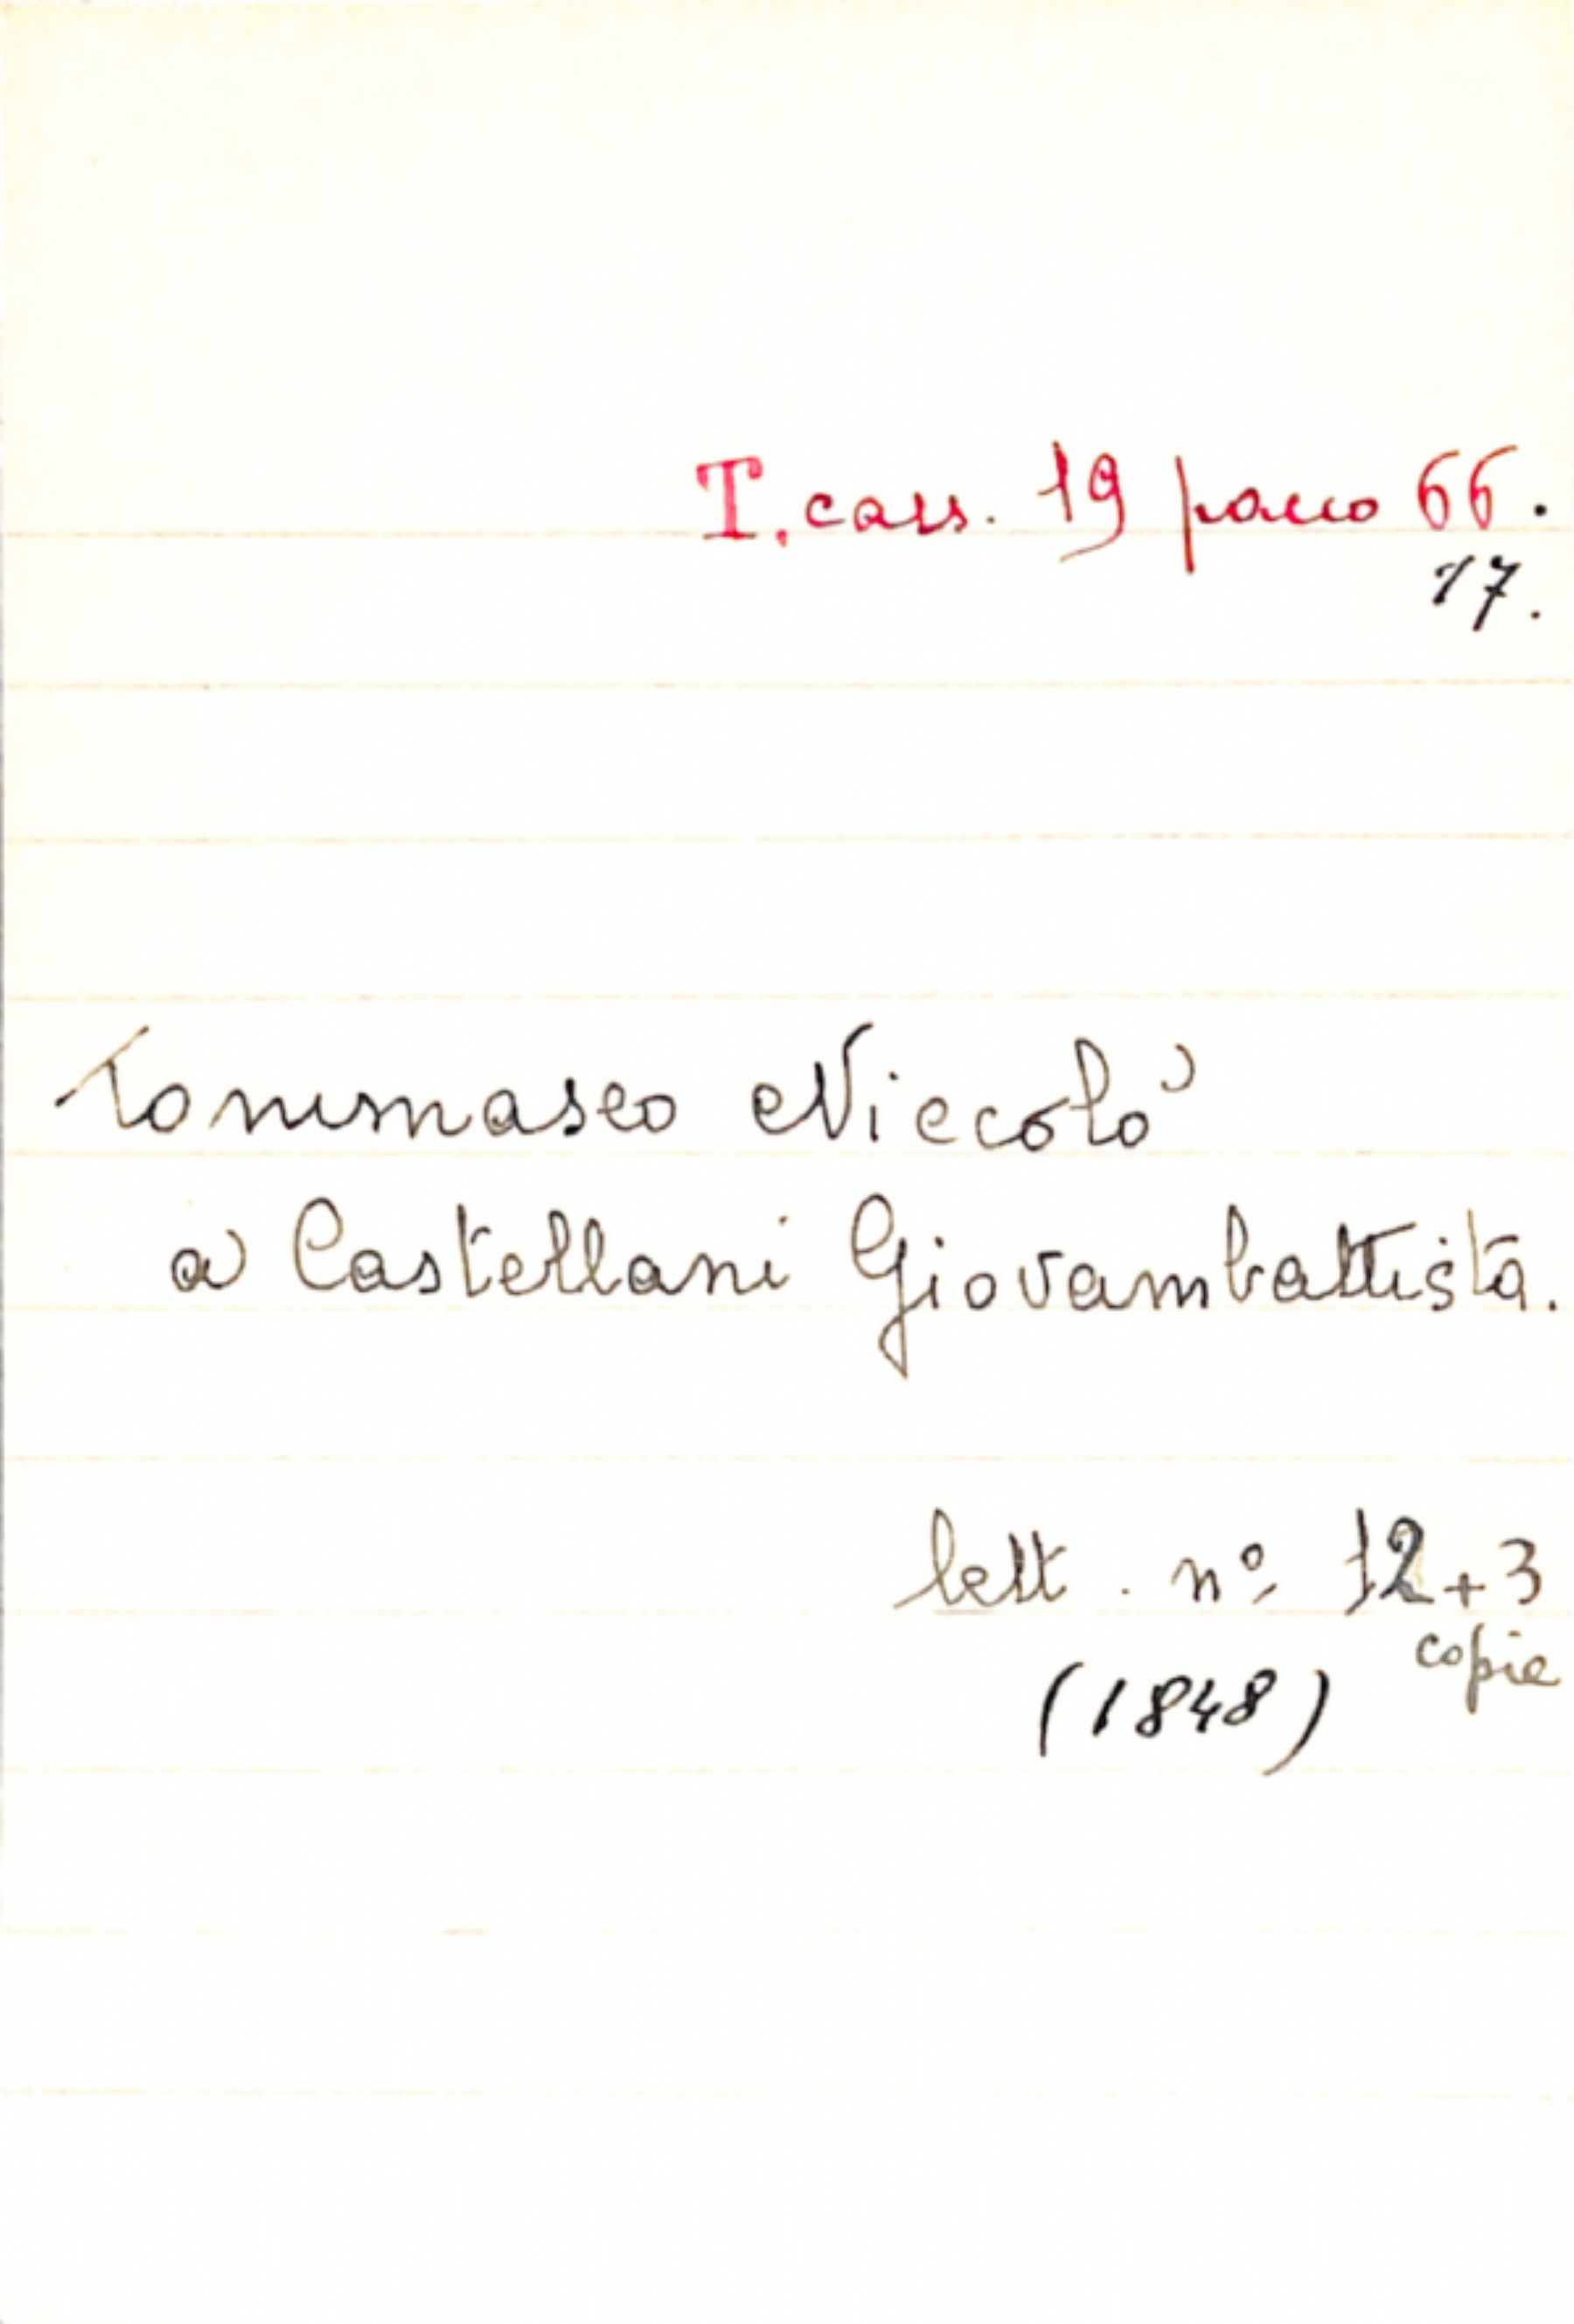 T. cass. 19 pacco 66.
17.
Tommaseo Niccolò
a Castellani Giovambattista.
lett. nº 12+3
copie
(1848)